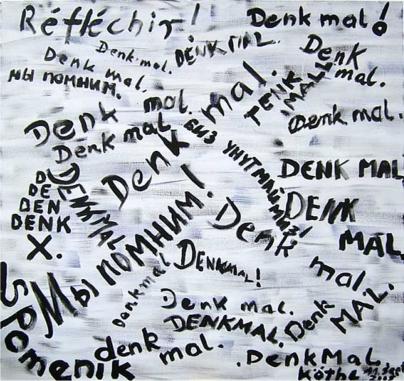 Réfléchir!
Denk mal!
Denk mal.
DENK MAL.
Denk mal.
Denk mal.
МЫ ПОМНИМ.
TENK
MAL!
Denk mal.
Denk mal.
Denk mal.
Denk mal.
БИЗ
DENK MAL
D
DE
DEN
DENK
X.
DENKMAL
DENK
MAL.
Мы ПОМНИМ!
Denk mal.
Denkmal
DENKMAL!
Spomenik
Denk mal.
DENKMAL.
Denk
MAL.
denk mal.
DENKMAL,
Köthe